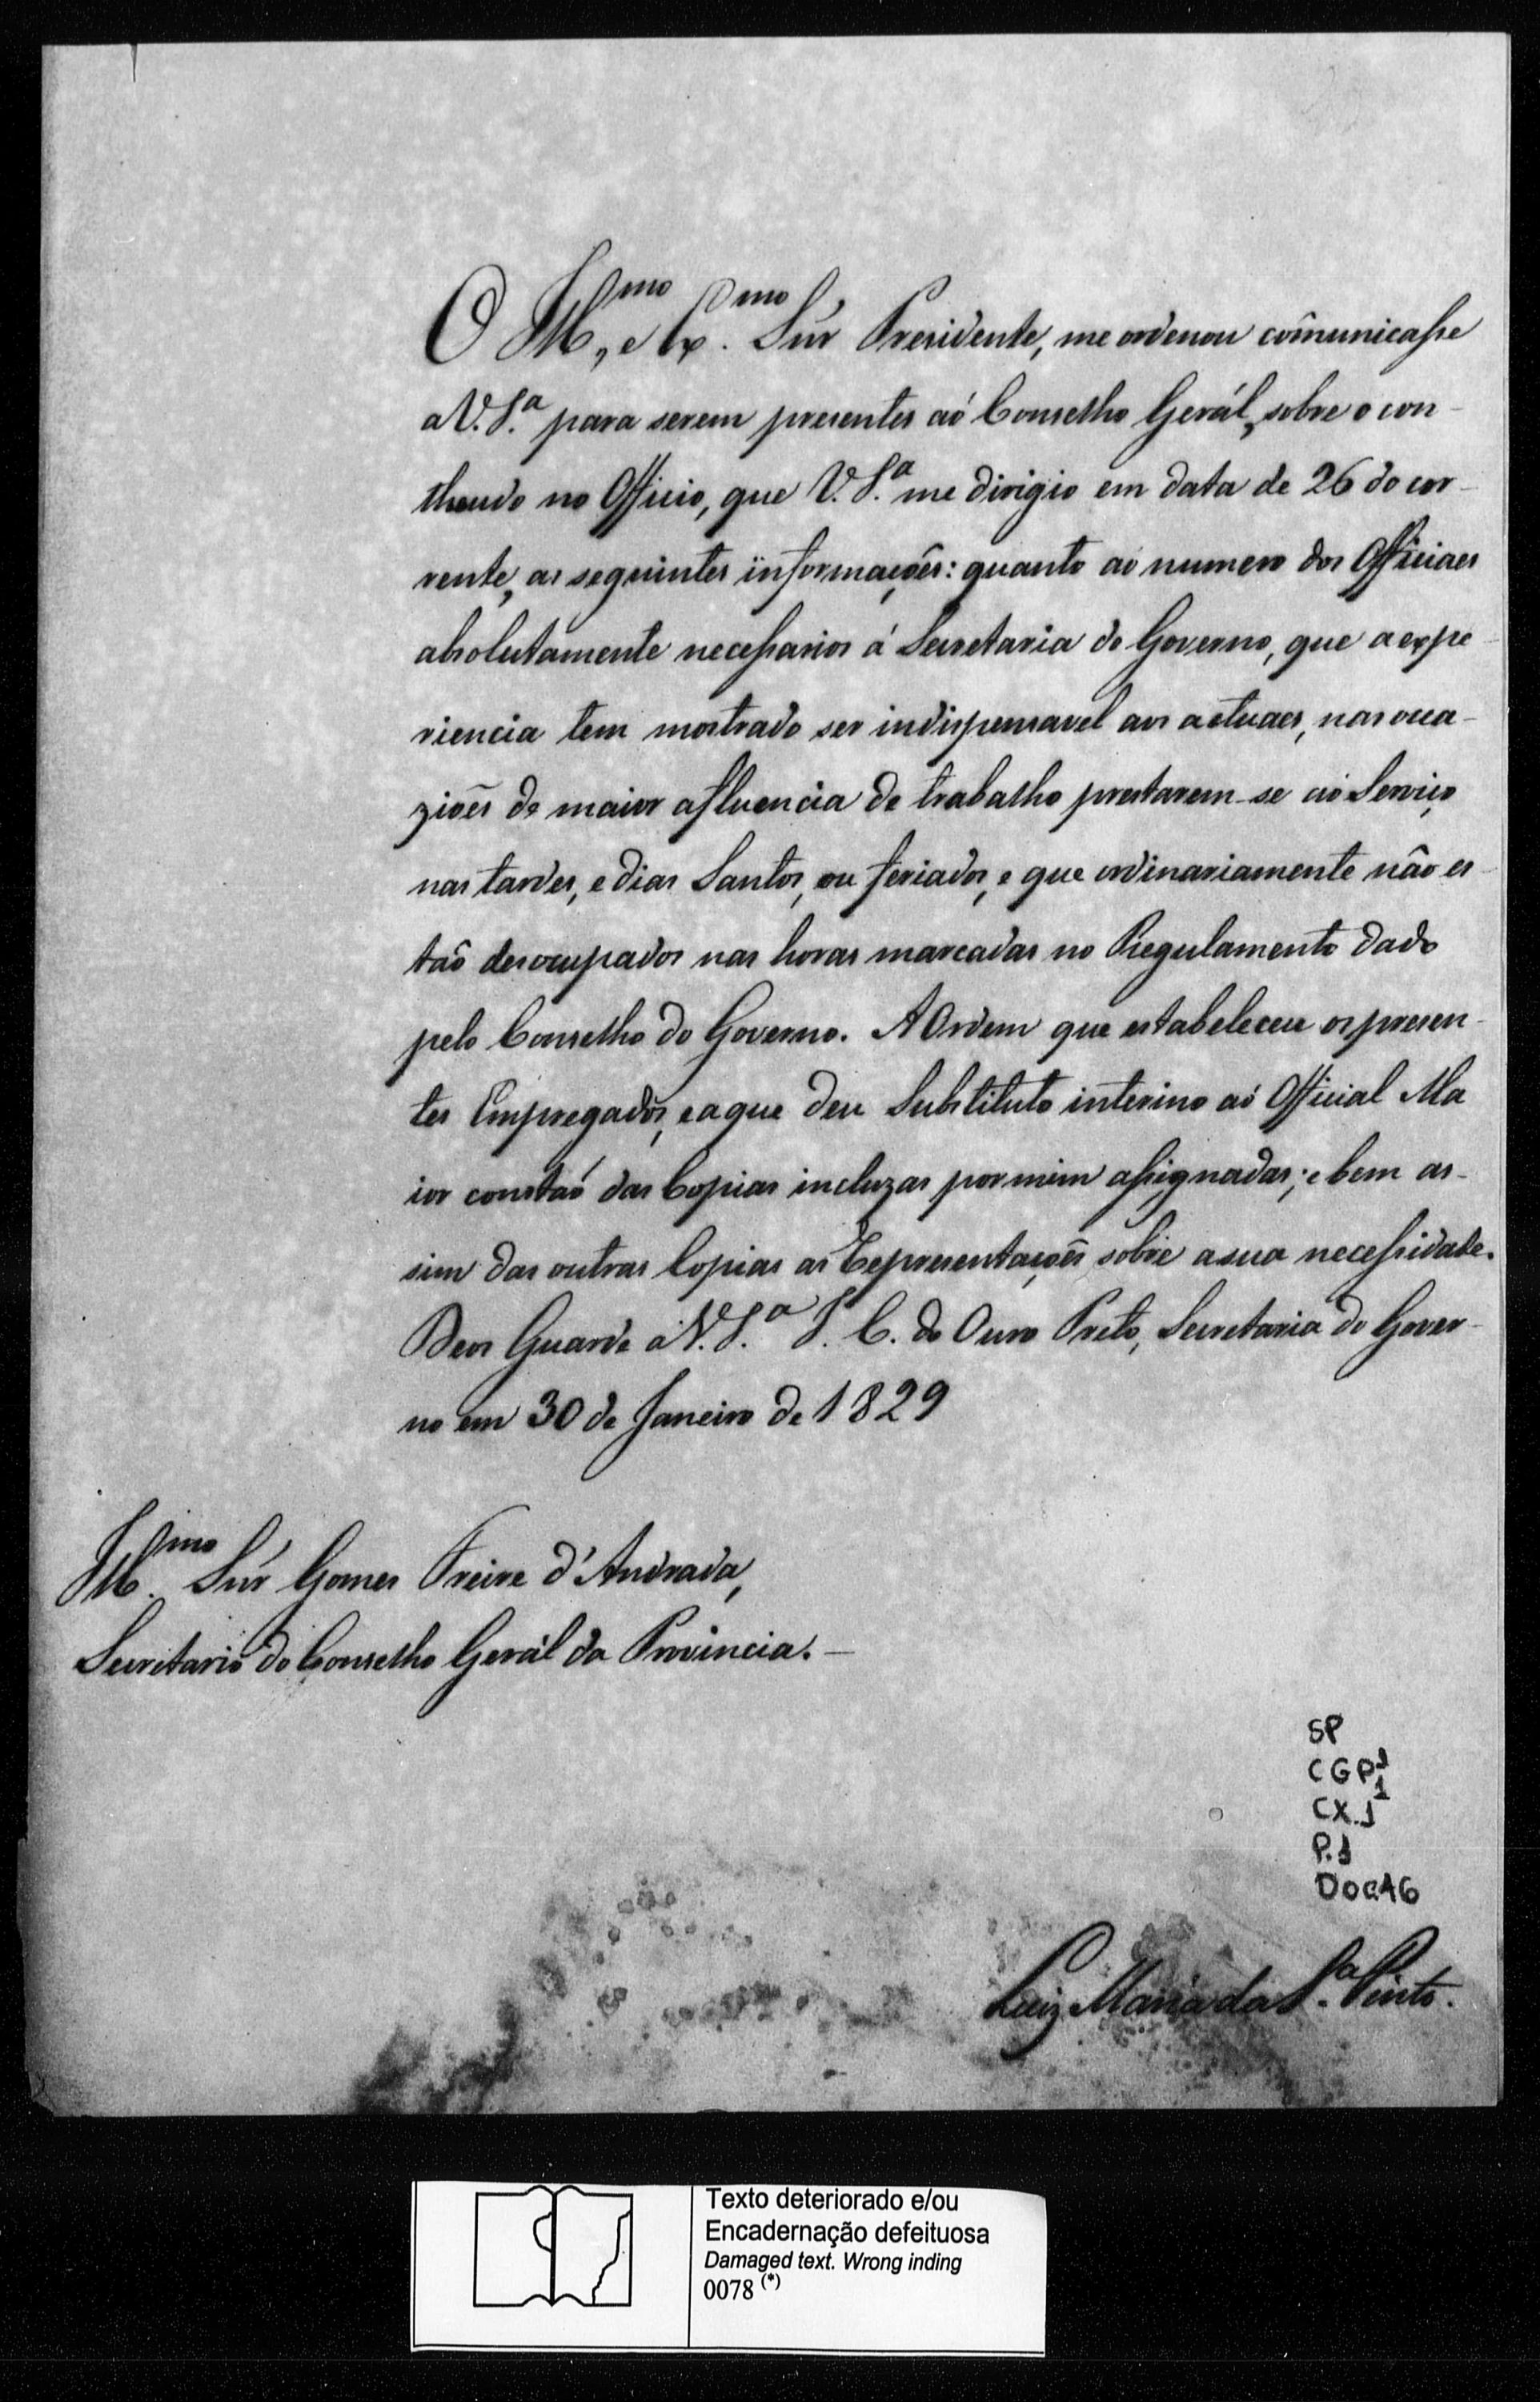 O Ill.mo, e Ex.mo Sńr Presidente, me ordenou com̃unicasse
a V. S.a para serem presentes aó Conselho Gerál, sobre o con-
theudo no Officio, que V. S.a me dirigio em data de 26 do cor-
rente, as seguintes informaçoẽs: quanto aó numero dos Officiaes
absolutamente necessarios á Secretaria do Governo, que a expe-
riencia tem mostrado ser indispensavel aos actuaes, nas occa-
zioẽs de maior afluencia de trabalho prestarem-se aó Serviço
nas tardes, e dias Santos, ou feriados, e que ordinariamente não es-
taõ desocupados nas horas marcadas no Regulamento dado
pelo Conselho do Governo. A Ordem que estabeleceu os presen-
tes Empregados, e a que deu Substituto interino aó Official Ma
ior constaó das Copias incluzas por mim assignadas; e bem as-
sim das outras Copias as Representaçoẽs sobre a sua necessidade.
Deos Guarde a V. S.a I. C. do Ouro Preto, Secretaria do Gover-
no em 30 de Janeiro de 1829
Ill.mo Sńr Gomes Freire d'Andrada,
Secretario do Conselho Gerál da Provincia.-
SP
CGP1
CX.1
P.1
DOC.16
Luiz Maria da S.a Pinto.
Texto deteriorado e/ou
Encadernação defeituosa
Damaged text. Wrong inding
0078 (*)